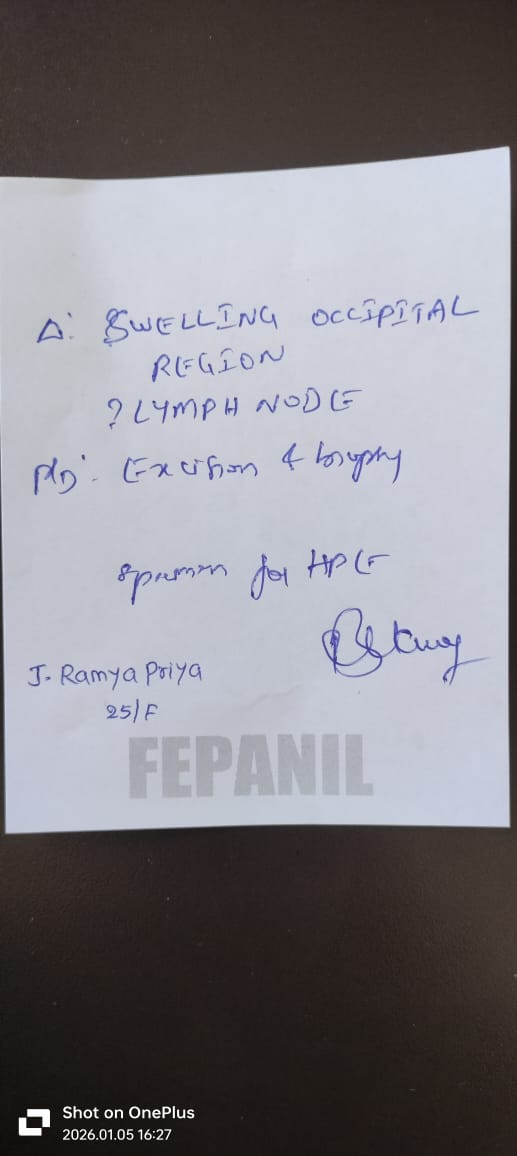 Δ: SWELLING OCCIPITAL
REGION
? LYMPH NODE
Excision & biopsy
Specimen for HPE
J. Ramya Priya
25/F
FEPANIL
Shot on OnePlus
2026.01.05 16:27